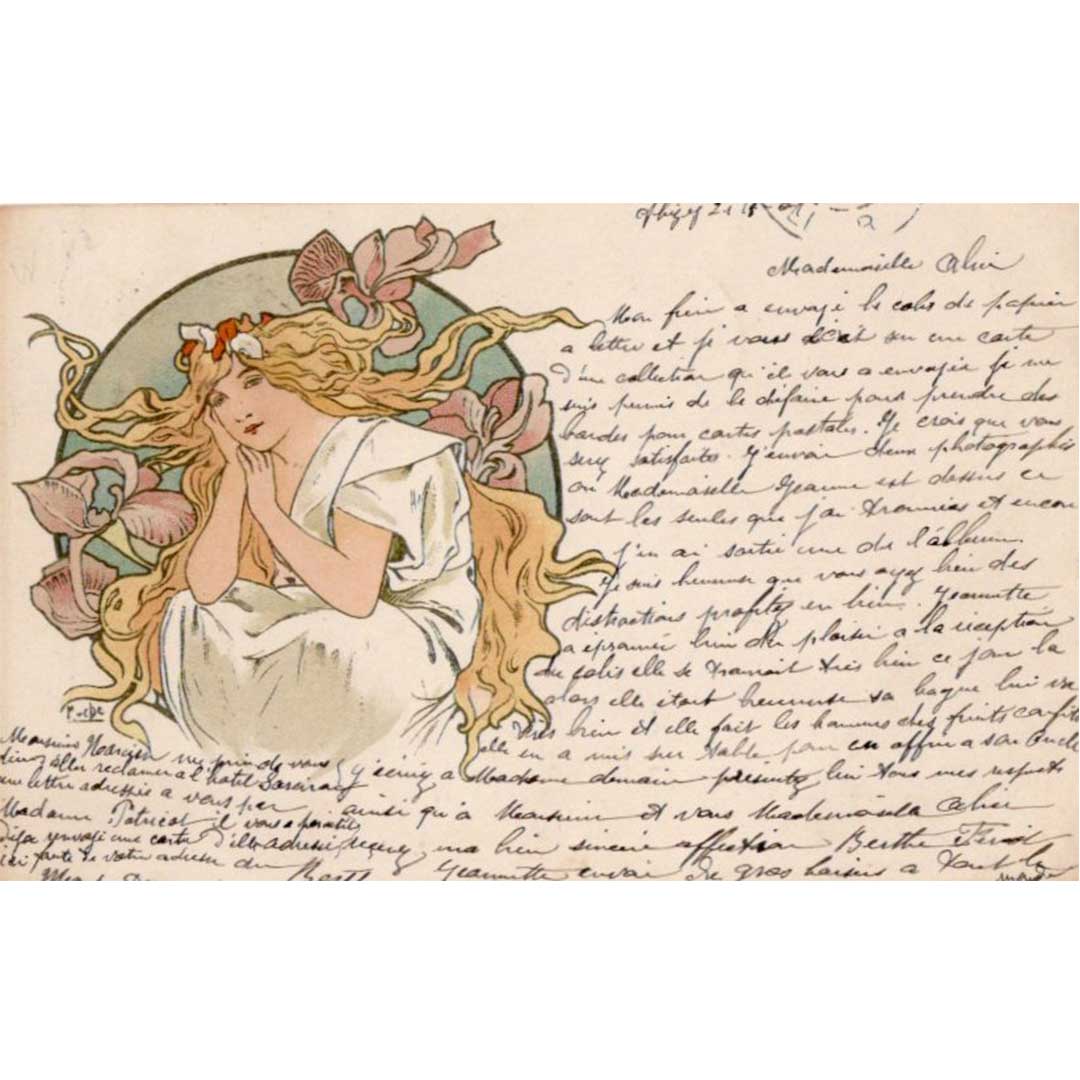 Mademoiselle Alice
Mon frère a envoyé le colis de papier
a lettre et je vous écrit sur une carte
d'une collection qu'il vous a envoyée je me
suis permis de le défaire pour prendre des
bardes pour cartes postales. Je crois que vous
serez satisfaite. J'envoie deux photographies
ou Mademoiselle Jeanne est dessus ce
sont les seules que j'ai trouvées et encore
j'en ai sortie une de l'album
Je suis heureuse que vous ayez bien des
distractions profitez en bien. Jeannette
a éprouvée bien du plaisir a la réception
du colis elle se trouvait très bien ce jour la
alors elle était heureuse sa bague lui va
très bien et elle fait les hommes des fruits confits
elle en a mis sur table pour en offrir a son oncle
j'écirez a Madame demain présentez lui tous mes respects
ainsi qu'à Monsieur et vous Mademoisela Alice
ma bien sincère affection Berthe
Jeannette envoi de gros baisers a tout le
monde
Monsieur me prie de vous
dire d'aller réclamer a l'hotel
une lettre adressée a vous par
Madame Patricot il vous a
déja envoyé une carte d'elle
ici faute de votre adresse